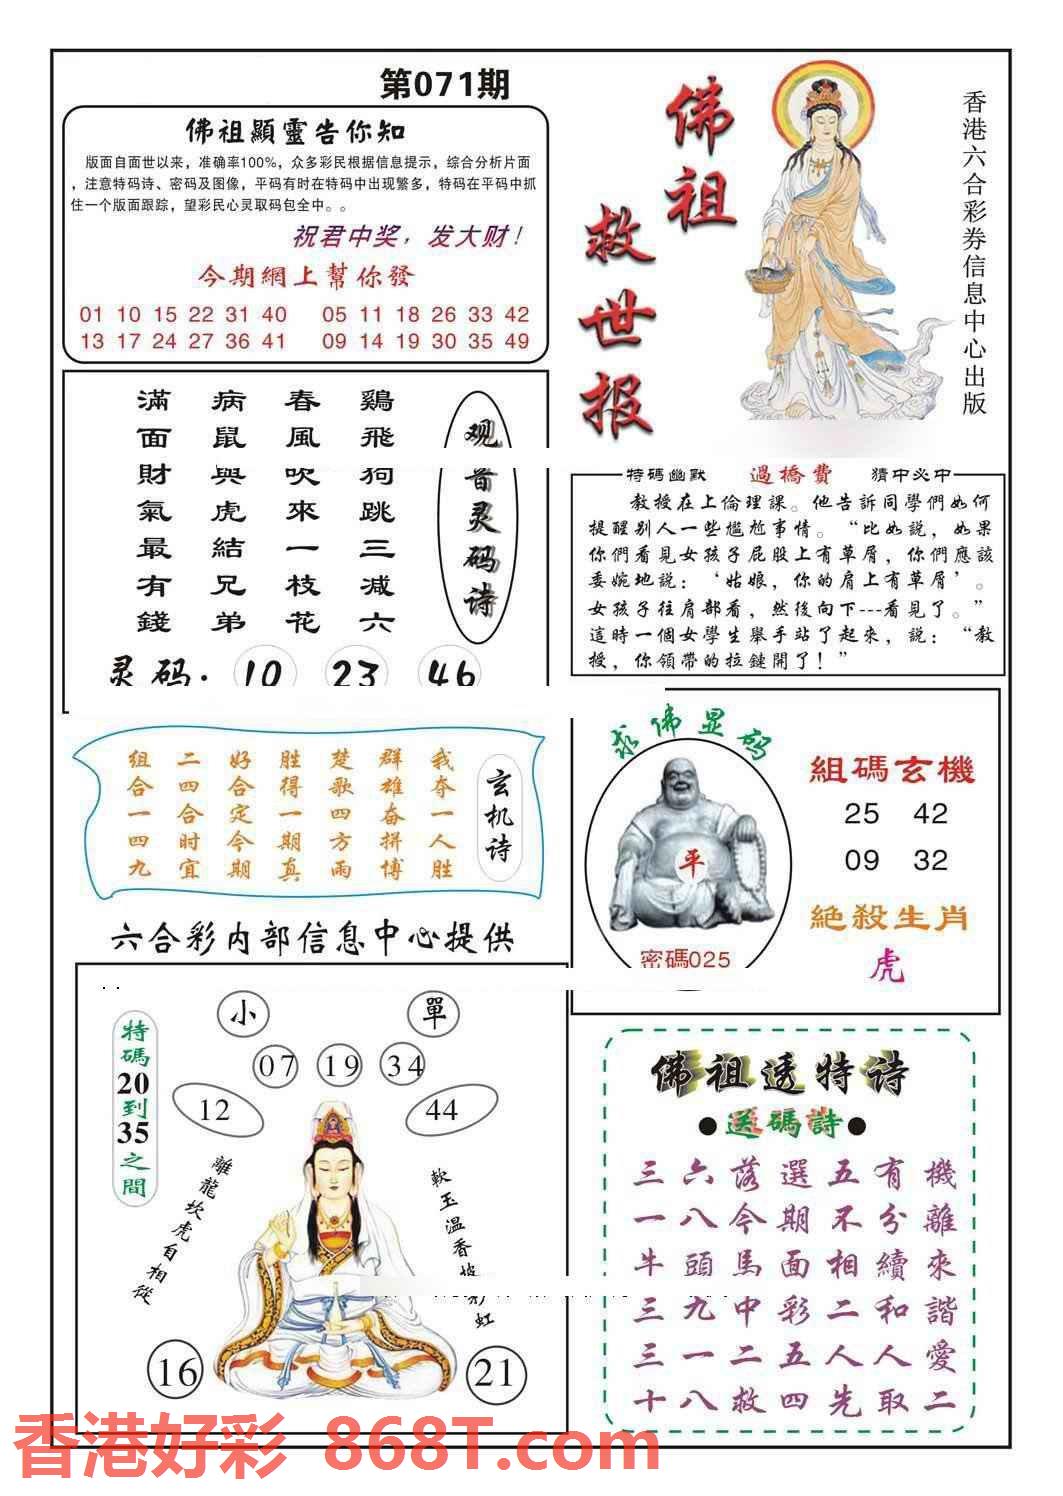 第071期
佛祖顯靈告你知
版面自面世以来，准确率100%，众多彩民根据信息提示，综合分析片面
，注意特码诗、密码及图像，平码有时在特码中出现繁多，特码在平码中抓
住一个版面跟踪，望彩民心灵取码包全中。。
祝君中奖，发大财！
今期網上幫你發
01 10 15 22 31 40 05 11 18 26 33 42
13 17 24 27 36 41 09 14 19 30 35 49
佛祖
救世报
香港六合彩券信息中心出版
观音灵码诗
鷄飛狗跳三减六
春風吹來一枝花
病鼠與虎結兄弟
滿面財氣最有錢
灵码. 10 23 46
特碼幽默 過橋費 猜中必中
教授在上倫理課。他告訴同學們如何
提醒别人一些尴尬事情。“比如説，如果
你們看見女孩子屁股上有草屑，你們應該
委婉地説：‘姑娘，你的肩上有草屑’。
女孩子往肩部看，然後向下---看見了。”
這時一個女學生舉手站了起來，説：“教
授，你領帶的拉鏈開了！”
玄机诗
我夺一人胜
群雄奋拼博
楚歌四方雨
胜得一期真
好合定今期
二四合时宜
组合一四九
求佛显码
平
密碼025
組碼玄機
25 42
09 32
絶殺生肖
虎
六合彩内部信息中心提供
特碼20到35之間
小 單
07 19 34
12 44
離龍坎虎自相從
軟玉温香披彩虹
16 21
佛祖透特诗
●送碼詩●
三六落選五有機
一八今期不分離
牛頭馬面相續來
三九中彩二和諧
三一二五人人愛
十八救四先取二
香港好彩 868T.com